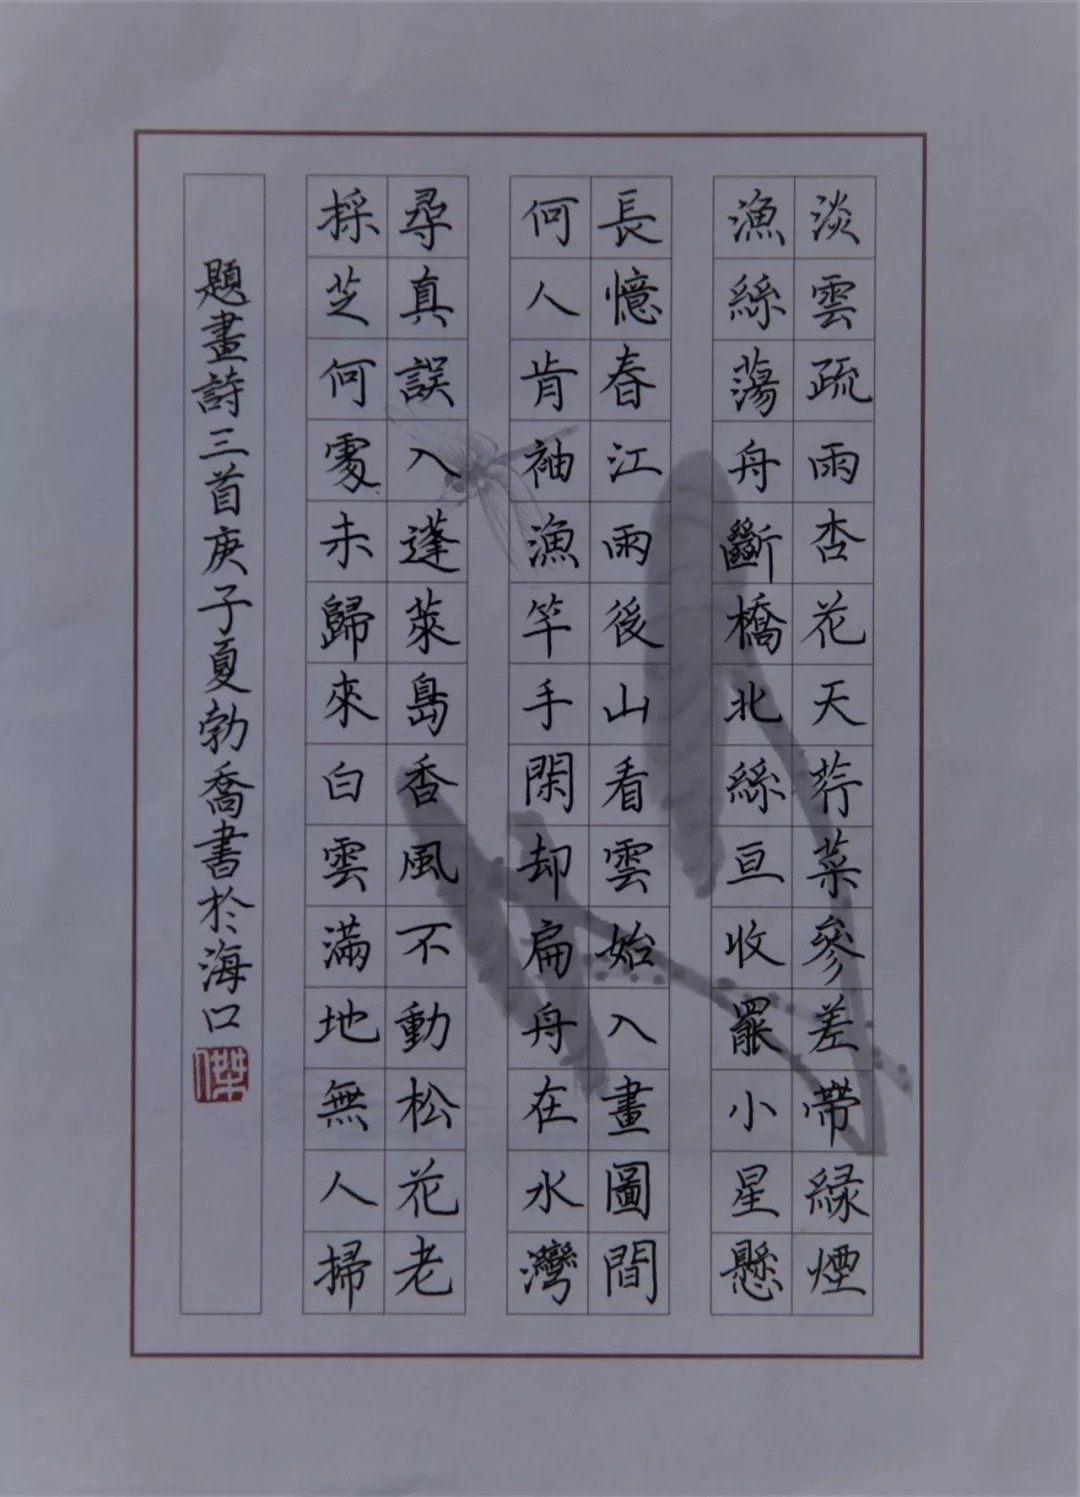 淡雲疏雨杏花天荇菜參差帶緑煙
漁絲蕩舟斷橋北絲亘收罷小星懸
長憶春江雨後山看雲始入畫圖間
何人肯袖漁竿手閑却扁舟在水灣
尋真誤入蓬萊島香風不動松花老
採芝何處未歸來白雲滿地無人掃
題畫詩三首庚子夏勃喬書於海口
傑